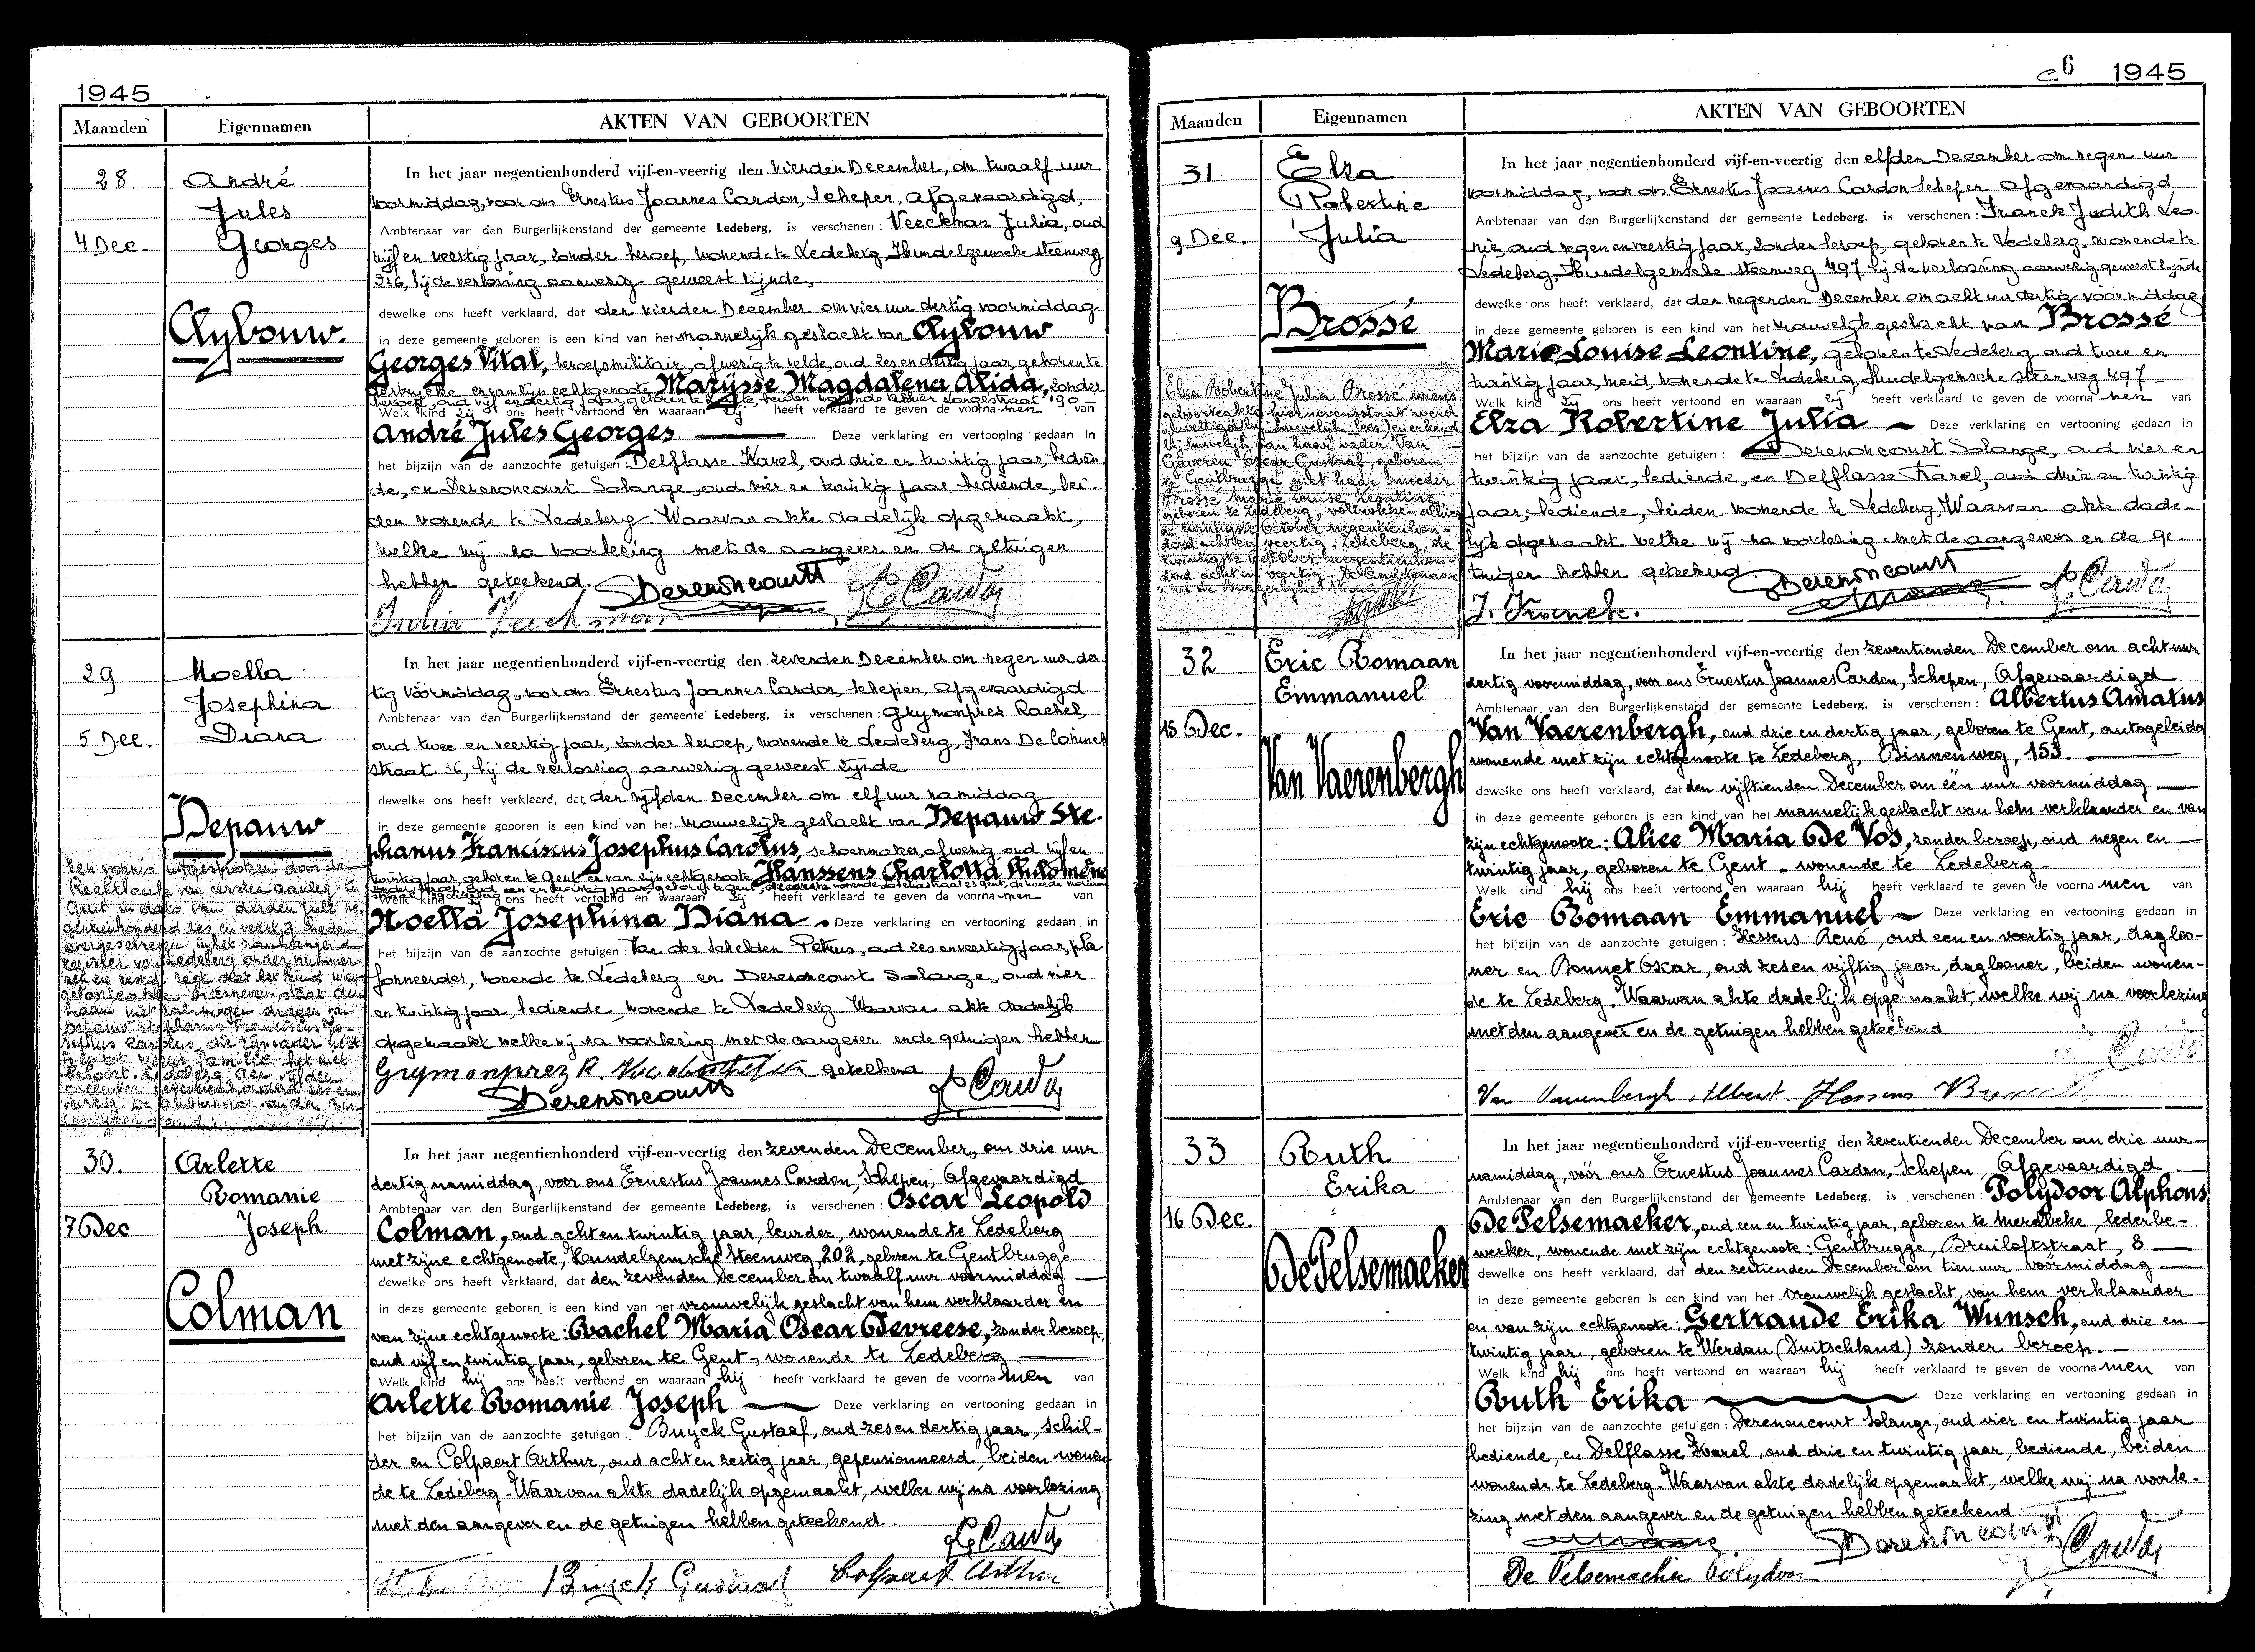 1945
Maanden Eigennamen AKTEN VAN GEBOORTEN
28
4 Dec.
André
Jules
Georges
Aybouw.
In het jaar negentienhonderd vijf-en-veertig den vierden December, om twaalf uur
voormiddag, voor ons Ernestus Joannes Cardon, Schepen, Afgevaardigd,
Ambtenaar van den Burgerlijkenstand der gemeente Ledeberg, is verschenen: Veeckman Julia, oud
vijf en veertig jaar, zonder beroep, wonende te Ledeberg, Hundelgemsche steenweg
236, bij de verlossing aanwezig geweest zijnde,
dewelke ons heeft verklaard, dat den vierden December om vier uur dertig voormiddag
in deze gemeente geboren is een kind van het mannelijk geslacht van Aybouw
Georges Vital, beroepsmilitair, afwezig te velde, oud zes en dertig jaar, geboren te
en van zijn echtgenoote Marijsse Magdalena Alida, zonder
beroep, oud vijf en dertig jaar, geboren te
Welk kind zij ons heeft vertoond en waaraan zij heeft verklaard te geven de voornamen van
André Jules Georges Deze verklaring en vertooning gedaan in
het bijzijn van de aanzochte getuigen: Delflasse Karel, oud drie en twintig jaar, bedien-
de, en Derenoncourt Solange, oud vier en twintig jaar, bediende, bei-
den wonende te Ledeberg. Waarvan akte dadelijk opgemaakt,
welke wij na voorlezing met de aangever en de getuigen
hebben geteekend. Derenoncourt
Julia Veeckman
29
5 Dec.
Noella
Josephina
Diana
Depauw
Een vonnis uitgesproken door de
Rechtbank van eersten aanleg te
Gent in dato van derden Juli ne-
gentienhonderd zes en veertig heden
overgeschreven in het aanhangend
register van Ledeberg onder nummer
acht en zestig, zegt dat het kind wiens
geboorteakte hiernevens staat den
naam niet zal mogen dragen van
Depauw Stephanus Franciscus Jo-
sephus Carolus, die zijn vader niet
is en tot wiens familie het niet
behoort. Ledeberg den vijfden
December negentienhonderd zes en
veertig. De Ambtenaar van den Bur-
In het jaar negentienhonderd vijf-en-veertig den zevenden December om negen uur der-
tig voormiddag, voor ons Ernestus Joannes Cardon, Schepen, Afgevaardigd
Ambtenaar van den Burgerlijkenstand der gemeente Ledeberg, is verschenen: Grymonprez Rachel,
oud twee en veertig jaar, zonder beroep, wonende te Ledeberg, Frans De Coninck
straat 36, bij de verlossing aanwezig geweest zijnde
dewelke ons heeft verklaard, dat den vijfden December om elf uur namiddag
in deze gemeente geboren is een kind van het vrouwelijk geslacht van Depauw Ste-
phanus Franciscus Josephus Carolus, schoenmaker, afwezig, oud vijf en
twintig jaar, geboren te Gent en van zijn echtgenoote Hanssens Charlotta Philomène
Welk kind zij ons heeft vertoond en waaraan zij heeft verklaard te geven de voornamen van
Noella Josephina Diana Deze verklaring en vertooning gedaan in
het bijzijn van de aanzochte getuigen: Van der Schelden Petrus, oud zes en veertig jaar, pla-
fonneerder, wonende te Ledeberg en Derenoncourt Solange, oud vier
en twintig jaar, bediende, wonende te Ledeberg. Waarvan akte dadelijk
opgemaakt welke wij na voorlezing met de aangever en de getuigen hebben
Grymonprez R. geteekend
Derenoncourt
30.
7 Dec
Arlette
Romanie
Joseph
Colman
In het jaar negentienhonderd vijf-en-veertig den zevenden December, om drie uur
dertig namiddag, voor ons Ernestus Joannes Cardon, Schepen, Afgevaardigd
Ambtenaar van den Burgerlijkenstand der gemeente Ledeberg, is verschenen: Oscar Leopold
Colman, oud acht en twintig jaar, leurder, wonende te Ledeberg
met zijne echtgenoote, Hundelgemsche Steenweg, 202, geboren te Gentbrugge
dewelke ons heeft verklaard, dat den zevenden December om twaalf uur voormiddag
in deze gemeente geboren is een kind van het vrouwelijk geslacht van hem verklaarder en
van zijne echtgenoote: Rachel Maria Oscar Devreese, zonder beroep,
oud vijf en twintig jaar, geboren te Gent, wonende te Ledeberg
Welk kind hij ons heeft vertoond en waaraan hij heeft verklaard te geven de voornamen van
Arlette Romanie Joseph Deze verklaring en vertooning gedaan in
het bijzijn van de aanzochte getuigen: Buyck Gustaaf, oud zes en dertig jaar, schil-
der en Colpaert Arthur, oud acht en zestig jaar, gepensionneerd, beiden wonen-
de te Ledeberg. Waarvan akte dadelijk opgemaakt, welke wij na voorlezing
met den aangever en de getuigen hebben geteekend.
Buyck Gustaaf Colpaert Arthur
6 1945
Maanden Eigennamen AKTEN VAN GEBOORTEN
31
9 Dec.
Elza
Robertine
Julia
Brossé
Elza Robertine Julia Brossé wiens
geboorteakte hiernevens staat werd
gewettigd (bij huwelijk: lees:) en erkend
bij huwelijk van haar vader Van
Gaveren Oscar Gustaaf, geboren
te Gentbrugge met haar moeder
Brossé Marie Louise Leontine,
geboren te Ledeberg, voltrokken alhier
de twintigste October negentienhon-
derd acht en veertig. Ledeberg, de
twintigste October negentienhon-
derd acht en veertig. De Ambtenaar
van de burgerlijke stand
In het jaar negentienhonderd vijf-en-veertig den elfden December om negen uur
voormiddag, voor ons Ernestus Joannes Cardon Schepen Afgevaardigd
Ambtenaar van den Burgerlijkenstand der gemeente Ledeberg, is verschenen: Franck Judith Leo-
nie, oud negen en veertig jaar, zonder beroep, geboren te Ledeberg, wonende te
Ledeberg, Hundelgemsche steenweg 497 bij de verlossing aanwezig geweest zijnde
dewelke ons heeft verklaard, dat den negenden December om acht uur dertig voormiddag
in deze gemeente geboren is een kind van het vrouwelijk geslacht van Brossé
Marie Louise Leontine, geboren te Ledeberg oud twee en
twintig jaar, meid, wonende te Ledeberg Hundelgemsche steenweg 497
Welk kind zij ons heeft vertoond en waaraan zij heeft verklaard te geven de voornamen van
Elza Robertine Julia Deze verklaring en vertooning gedaan in
het bijzijn van de aanzochte getuigen: Derenoncourt Solange, oud vier en
twintig jaar, bediende, en Delflasse Karel, oud drie en twintig
jaar, bediende, beiden wonende te Ledeberg. Waarvan akte dade-
lijk opgemaakt welke wij na voorlezing met de aangevers en de ge-
tuigen hebben geteekend Derenoncourt
J. Franck.
32
15 Dec.
Eric Romaan
Emmanuel
Van Vaerenbergh
In het jaar negentienhonderd vijf-en-veertig den zeventienden December om acht uur
dertig voormiddag, voor ons Ernestus Joannes Cardon, Schepen, Afgevaardigd
Ambtenaar van den Burgerlijkenstand der gemeente Ledeberg, is verschenen: Albertus Amatus
Van Vaerenbergh, oud drie en dertig jaar, geboren te Gent, autogeleider
wonende met zijn echtgenoote te Ledeberg, Binnenweg, 153.
dewelke ons heeft verklaard, dat den vijftienden December om één uur voormiddag
in deze gemeente geboren is een kind van het mannelijk geslacht van hem verklaarder en van
zijn echtgenoote: Alice Maria De Vos, zonder beroep, oud negen en
twintig jaar, geboren te Gent, wonende te Ledeberg
Welk kind hij ons heeft vertoond en waaraan hij heeft verklaard te geven de voornamen van
Eric Romaan Emmanuel Deze verklaring en vertooning gedaan in
het bijzijn van de aanzochte getuigen: Hessens René, oud een en veertig jaar, dagloo-
ner en Bonnet Oscar, oud zes en vijftig jaar, daglooner, beiden wonen-
de te Ledeberg. Waarvan akte dadelijk opgemaakt, welke wij na voorlezing
met den aangever en de getuigen hebben geteekend
Van Vaerenbergh Albert. Hessens
33
16 Dec.
Ruth
Erika
De Pelsemaeker
In het jaar negentienhonderd vijf-en-veertig den zeventienden December om drie uur
namiddag, vóór ons Ernestus Joannes Cardon, Schepen Afgevaardigd
Ambtenaar van den Burgerlijkenstand der gemeente Ledeberg, is verschenen: Polydoor Alphons
De Pelsemaeker, oud een en twintig jaar, geboren te Merelbeke, lederbe-
werker, wonende met zijn echtgenoote: Gentbrugge, Bruiloftstraat, 8
dewelke ons heeft verklaard, dat den zestienden December om tien uur voormiddag
in deze gemeente geboren is een kind van het vrouwelijk geslacht, van hem verklaarder
en van zijn echtgenoote: Gertraude Erika Wunsch, oud drie en
twintig jaar, geboren te Werdau (Duitschland) zonder beroep.
Welk kind hij ons heeft vertoond en waaraan hij heeft verklaard te geven de voornamen van
Ruth Erika Deze verklaring en vertooning gedaan in
het bijzijn van de aanzochte getuigen: Derenoncourt Solange, oud vier en twintig jaar
bediende, en Delflasse Karel, oud drie en twintig jaar, bediende, beiden
wonende te Ledeberg. Waarvan akte dadelijk opgemaakt, welke wij na voorle-
zing met den aangever en de getuigen hebben geteekend.
Derenoncourt
De Pelsemaeker Polydoor